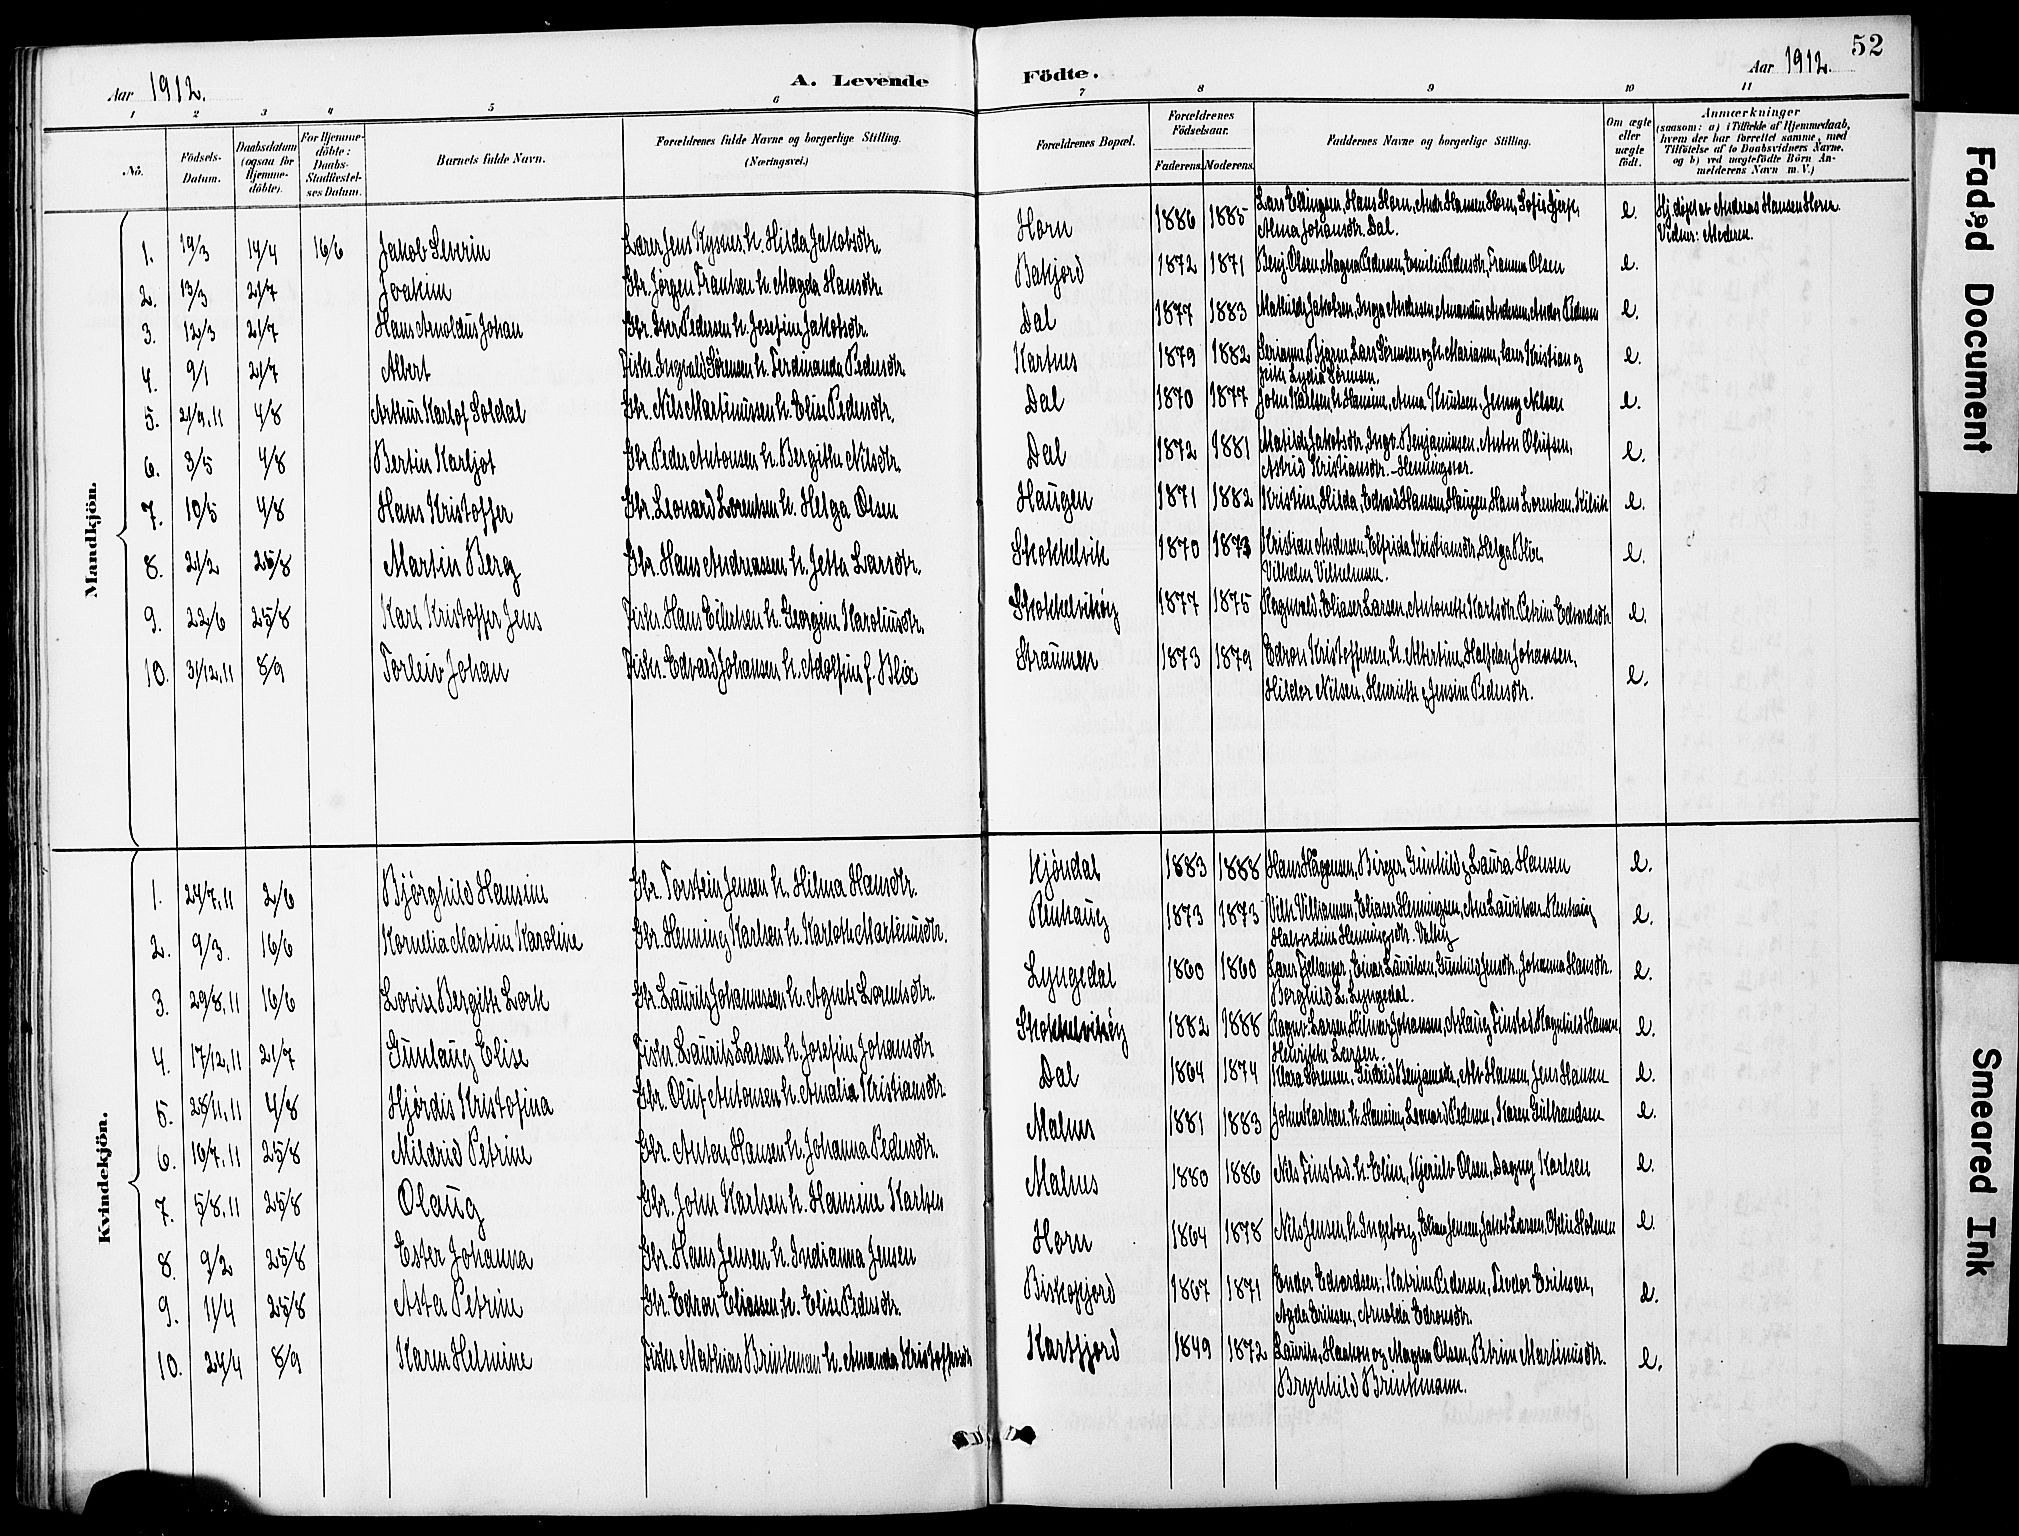 52
Aar 1912.
A. Levende Födte.
Aar 1912.
1 2 3 4 5 6 7 8 9 10 11
Nô.
Födsels-Datum.
Daabsdatum (ogsaa for Hjemme-döbte).
For Hjemme-döbte: Daabs-Stadfæstel-ses Datum.
Barnets fulde Navn.
Forældrenes fulde Navne og borgerlige Stilling. (Næringsvei.)
Forældrenes Bopæl.
Forældrenes Födselsaar.
Faderens. Moderens.
Faddernes Navne og borgerlige Stilling.
Om ægte eller uægte födt.
Anmærkninger (saasom: a) i Tilfælde af Hjemmedaab, hvem der har forrettet samme, med Tilföielse af to Daabsvidners Navne, og b) ved uægtefödte Börn An-melderens Navn m. V.)
Mandkjön.
1. 19/3 14/4 16/6 Jakob Severin Lærer Jens h. Hilda Jakobsdtr. Horn 1886 1885 Lars Ellingsen, Hans Horn, Andr. Hansen Horn, Sofie
Alma Johansdtr. Dal. e. Hj.døpt av Andreas Hansen Horn.
Vidner: Moderen.
2. 13/3 21/7 Joakim Gbr. Jørgen Frantsen h. Magda Hansdtr. Bakjord 1872 1871 Benj. Olsen, Magna Pedersen, Emilie Pedersdtr, Olsen e.
3. 12/3 21/7 Hans Arnoldus Johan Gbr. Iver Pedersen h. Josefine Jakobsdtr. Dal 1877 1883 Mathilde Jakobsen, Inga Andersen, Amandus Andersen, Andor Pedersen e.
4. 9/1 21/7 Albert Fisker Ingvald Sörensen h. Ferdinanda Pedersdtr. Kartnes 1879 1882 Bjørn, Lars Sörensen og h. Mariann, Lars Kristian og
Lydia Sörensen. e.
5. 21/9.11 4/8 Arthur Karlof Soldal Gbr. Nils Martinussen h. Eline Pedersdtr. Dal 1870 1877 John Karlsen h. Hansine, Anna Knudsen, Jenny Nilsen e.
6. 3/5 4/8 Bertin Karljot Gbr. Peder Antonsen h. Bergithe Nilsdtr. Dal 1872 1881 Matilde Jakobsdtr, Ingv. Benjaminsen, Anton Olufsen,
Astrid Kristiansdtr. - Henningsvær. e.
7. 10/5 4/8 Hans Kristoffer Gbr. Leonard Lorentsen h. Helga Olsen Haugen 1871 1882 Kristine, Hilda, Edvard Hansen, Haugen, Hans Lorentsen, Kilvik e.
8. 21/2 25/8 Martin Berg Gbr. Hans Andreassen h. Jetta Larsdtr. Stokkelvik 1870 1873 Kristian Andersen, Elfrida Kristiansdtr, Helga Blix,
Vilhelm Vilhelmsen. e.
9. 22/6 25/8 Karl Kristoffer Jens Fisker Hans Eilertsen h. Georgine Karoliusdtr. Stokkelvikøy 1877 1875 Ragnvald, Eliaser Larsen, Antonette Karlsdtr. Petrine Edvardsdtr e.
10. 31/12.11 8/9 Torleiv Johan Fisker. Edvard Johansen h. Adolfine f. Blix Straumen 1873 1879 Edron Kristoffersen, h. Albertine, Halfdan Johansen,
Hildor Nilsen, Henriette & Jensine Pedersdtr. e.
Kvindekjön.
1. 24/7.11 2/6 Bjørghild Hansine Gbr. Torstein Jensen h. Hilma Hansdtr. Kjöndal 1883 1888 Hans Hågensen, Birger, Gunhild & Laura Hansen e.
2. 9/3. 16/6 Kornelia Martine Karoline Gbr. Henning Karlsen h. Karlotte Martinusdtr. Renhaug 1873 1873 Vilh. Villumsen, Eliaser Henningsen, Ane Renhaug
Halvardine Henningsdtr. e.
3. 29/8.11 16/6 Lovise Bergitte Lork Gbr. Laurits Johannessen h. Agnete Lorentsdtr. Lyngedal 1860 1860 Lærer Fjellanger, Einar Lauritsen, Gunhild Jensdtr. Johanna Hansdtr.
Borghild L. Lyngedal. e.
4. 17/12.11 21/7 Gunlaug Elise Fisker. Laurits Larsen h. Josefine Johansdtr Stokkelvikøy 1882 1888 Ragnv. Larsen, Hilmar Johansen, Aslaug Finstad, Ragnhild Hansen,
Henrikke Larsen. e.
5. 28/11.11 4/8 Hjördis Kristofina Gbr. Oluf Antonsen h. Amalia Kristiansdtr. Dal 1864 1874 Klara Sörensen, Gudrid Benjaminsdtr, Alv Hansen, Jens Hansen e.
6. 16/7.11 25/8 Mildrid Petrine Gbr. Anton Hansen h. Johanna Pedersdtr. Malnes 1881 1883 Johns Karlsen h. Hansine, Leonard Pedersen, Karen Gulbrandsen e.
7. 5/8.11 25/8 Olaug Gbr. John Karlsen h. Hansine Karlsen Malnes 1880 1886 Nils Finstad h. Eline, Kjerulv Olsen, Dagny Karlsen e.
8. 9/2 25/8 Ester Johanna Gbr. Hans Jensen h. Indianna Jensen Horn 1864 1878 Nils Jensen, h. Ingeborg, Jensen, Jakob Larsen, Otelie Holmen e.
9. 11/4 25/8 Asta Petrine Gbr. Edron Eliassen, h. Elise Pedersdtr. Biskopjord 1867 1871 Endor Edvardsen, Katrine Pedersen, Teodor Eriksen,
Agda Eriksen, Arnolda Edronsdtr. e.
10. 24/4 8/9 Karen Helmine Fisker Mathias Brinkman h. Amanda Kristoffersdtr Kartfjord 1849 1872 Laurits, Haakon og Magna Olsen, Petrine Martinusdtr.
Brynhild Brinkmann. e.
Faded Document
Smeared Ink